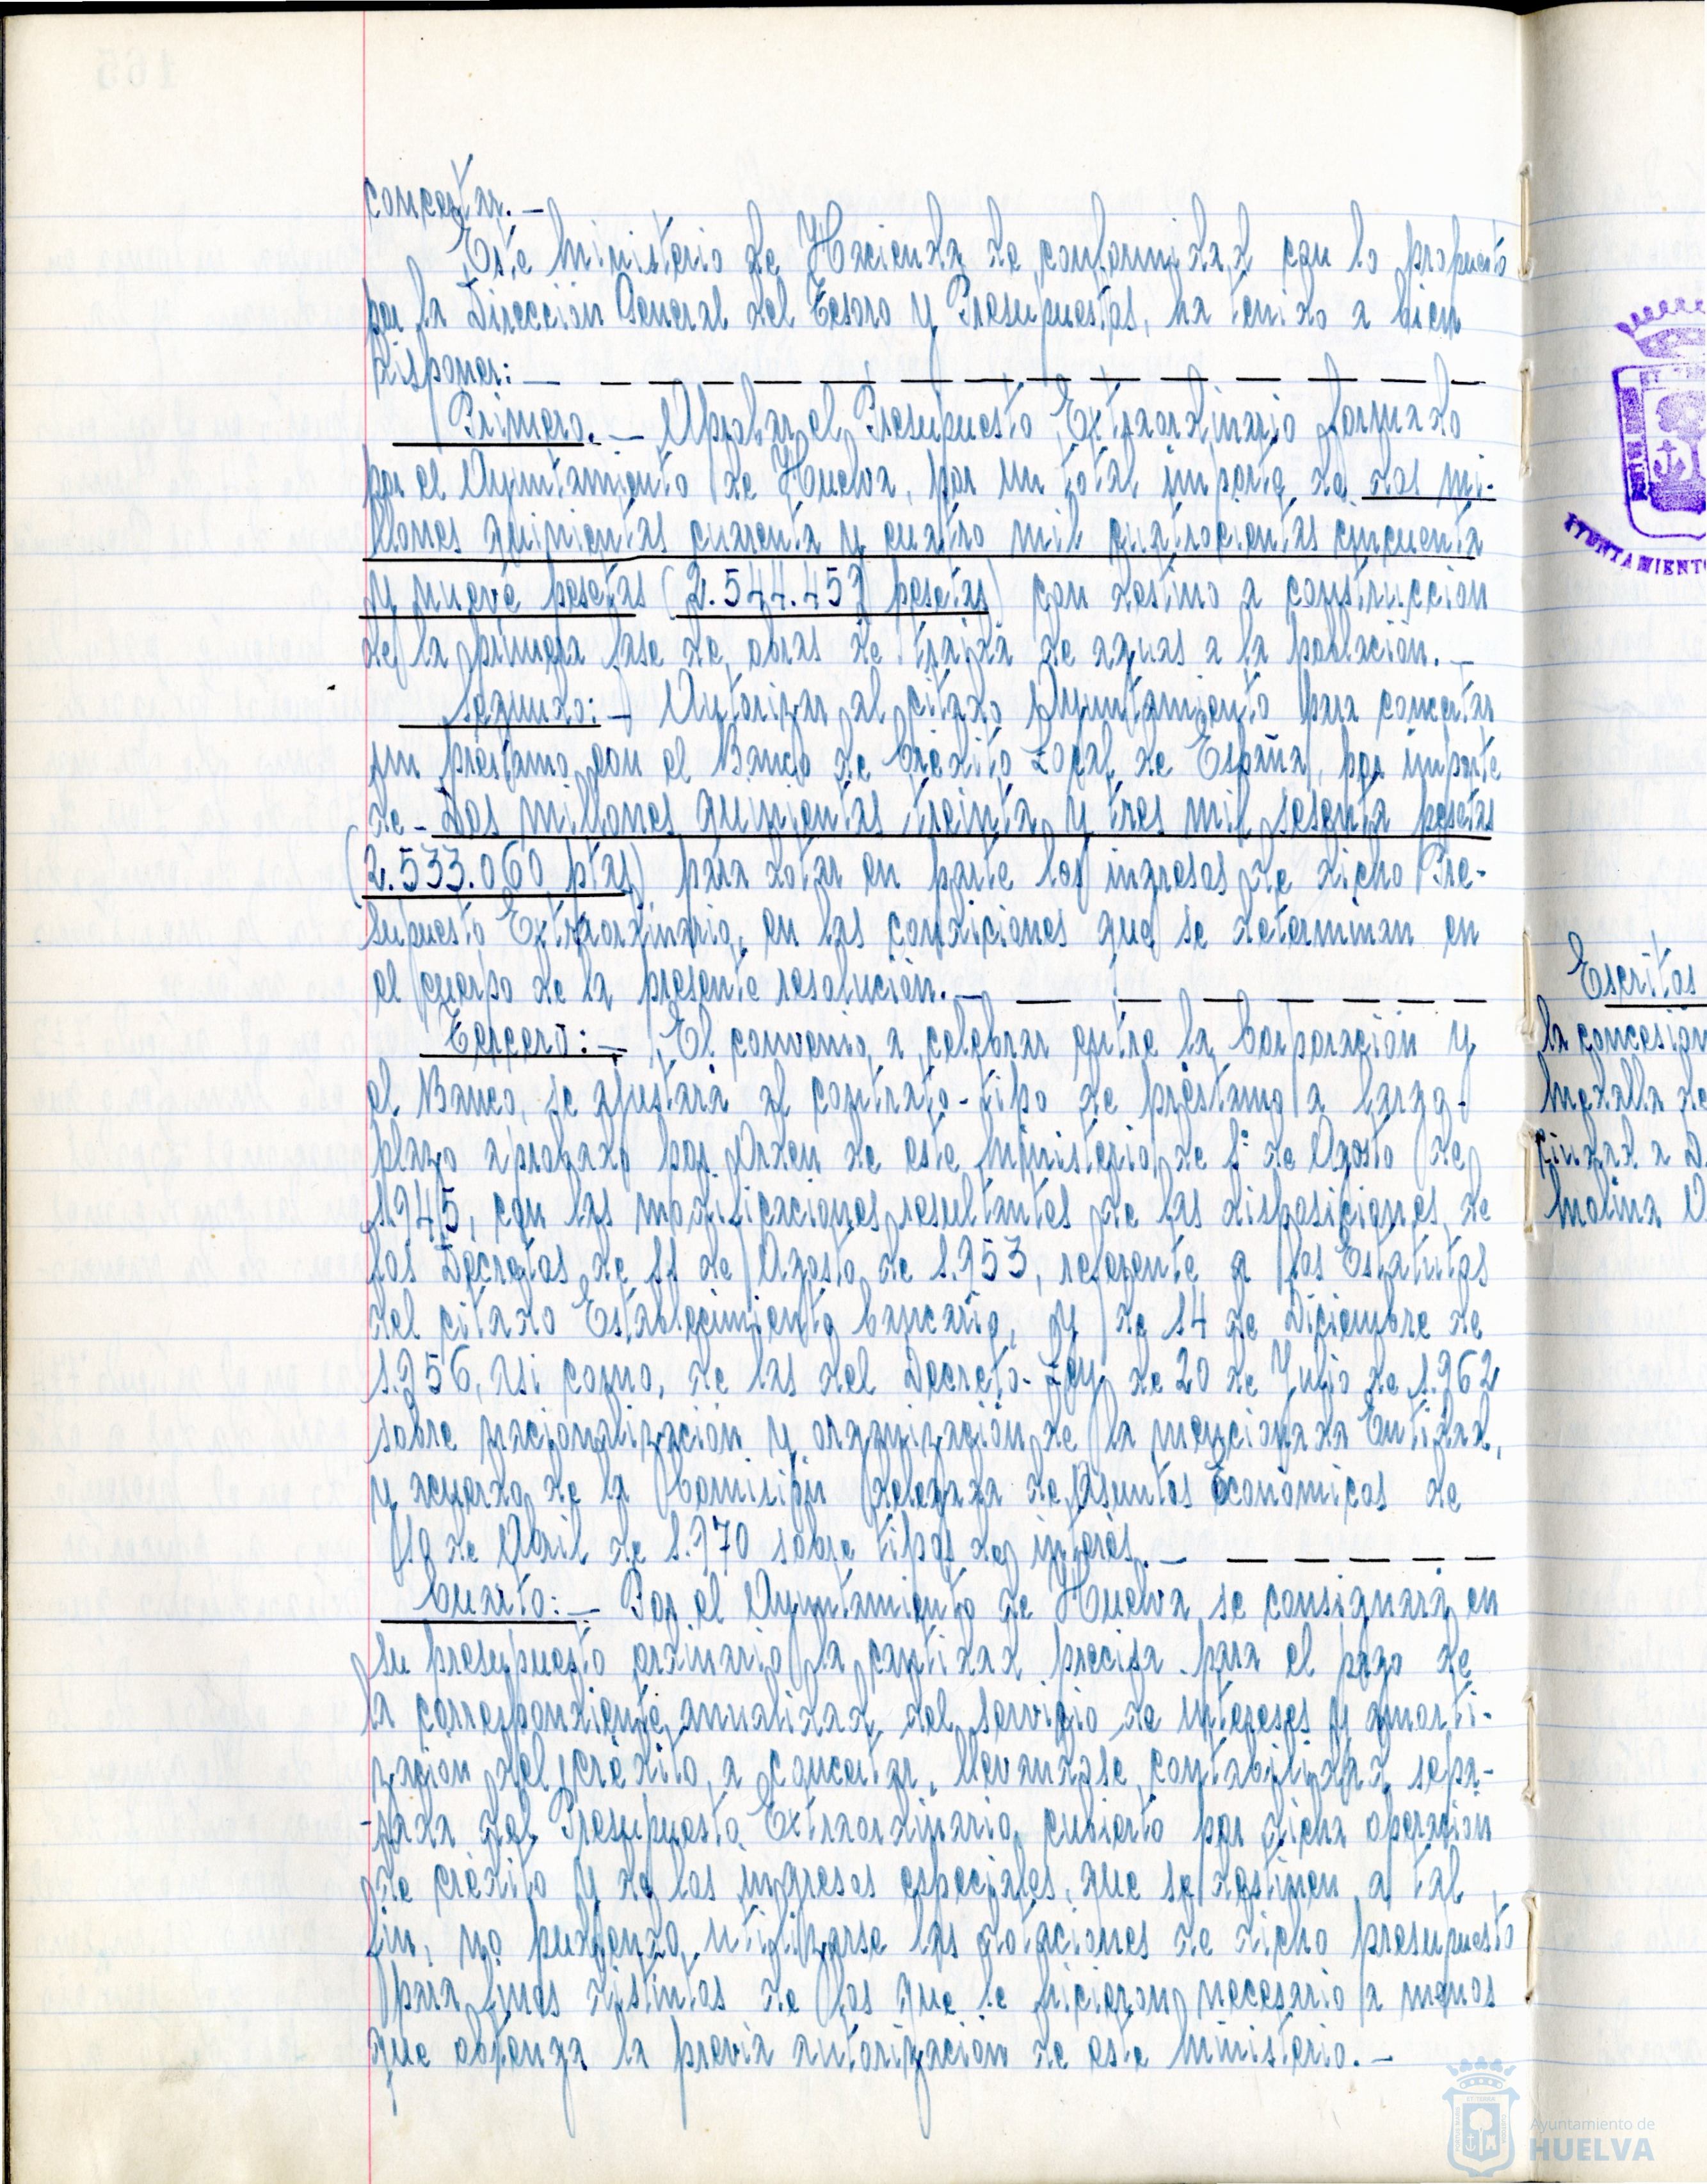 concertar.-
Este Ministerio de Hacienda de conformidad con lo propuesto
por la Dirección General del Tesoro y Presupuestos, ha tenido a bien
disponer: -
Primero. - Aprobar el Presupuesto Extraordinario formado
por el Ayuntamiento de Huelva, por un total importe de dos mi-
llones quinientas cuarenta y cuatro mil cuatrocientas cincuenta
y nueve pesetas (2.544.459 pesetas) con destino a construcción
de la primera fase de obras de traida de aguas a la población. -
Segundo: - Autorizar al citado Ayuntamiento para concertar
un préstamo con el Banco de Crédito Local de España, por importe
de - Dos millones quinientas treinta y tres mil sesenta pesetas
(2.533.060 ptas) para dotar en parte los ingresos de dicho Pre-
supuesto Extraordinario, en las condiciones que se determinan en
el cuerpo de la presente resolución. -
Tercero: - El convenio a celebrar entre la Corporación y
el Banco, se ajustará al contrato-tipo de préstamo a largo-
plazo aprobado por Orden de este Ministerio de 1º de Agosto de
1.945, con las modificaciones resultantes de las disposiciones de
los Decretos de 11 de Agosto de 1.953, referente a los Estatutos
del citado Establecimiento bancario, y de 14 de Diciembre de
1.956, asi como, de las del Decreto-Ley de 20 de Julio de 1.962
sobre nacionalización y organización de la mencionada Entidad,
y acuerdo de la Comisión Delegada de Asuntos Económicos de
10 de Abril de 1.970 sobre tipos de interés. -
Cuarto: - Por el Ayuntamiento de Huelva se consignará en
su presupuesto ordinario la cantidad precisa para el pago de
la correspondiente anualidad del servicio de intereses y amorti-
zación del crédito a concertar, llevandose contabilidad sepa-
-rada del Presupuesto Extraordinario cubierto por dicha operación
de crédito y de los ingresos especiales, que se destinen a tal
fin, no pudiendo utilizarse las dotaciones de dicho presupuesto
para fines distintos de los que le hicieron necesario a menos
que obtenga la previa autorización de este Ministerio. -
AYUNTAMIENTO
Escritos
la concesión
Medalla de
Ciudad a D.
Molina
Ayuntamiento de
HUELVA